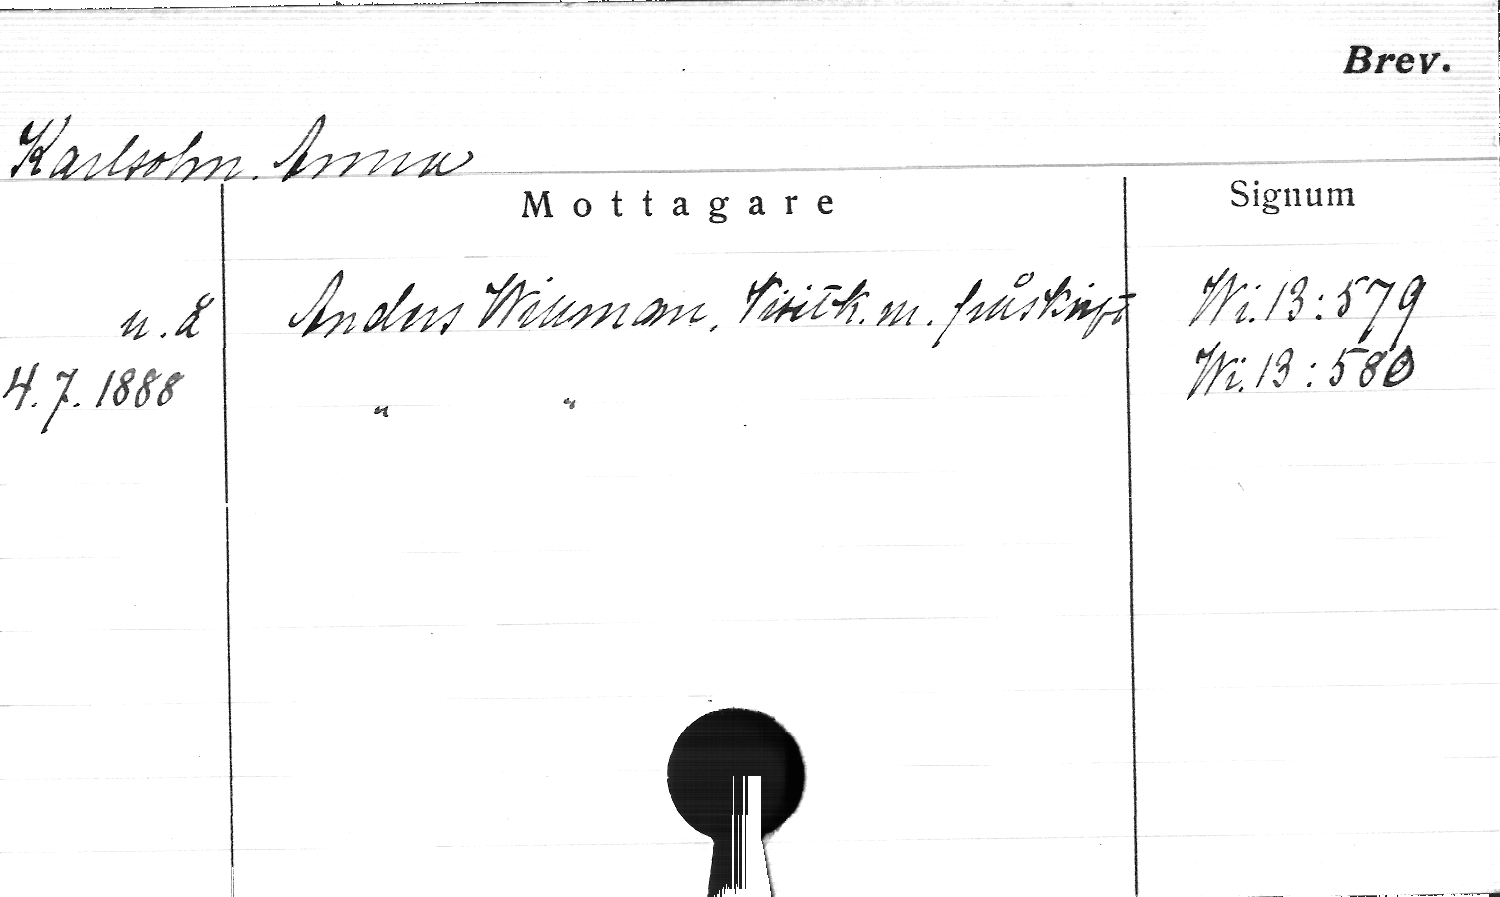 Brev.
Karlsohn, Anna
Mottagare
Signum
u.å Anders Willman, Visitk. m. påskrift Wi.13:579
4.7.1888 " " Wi.13:580